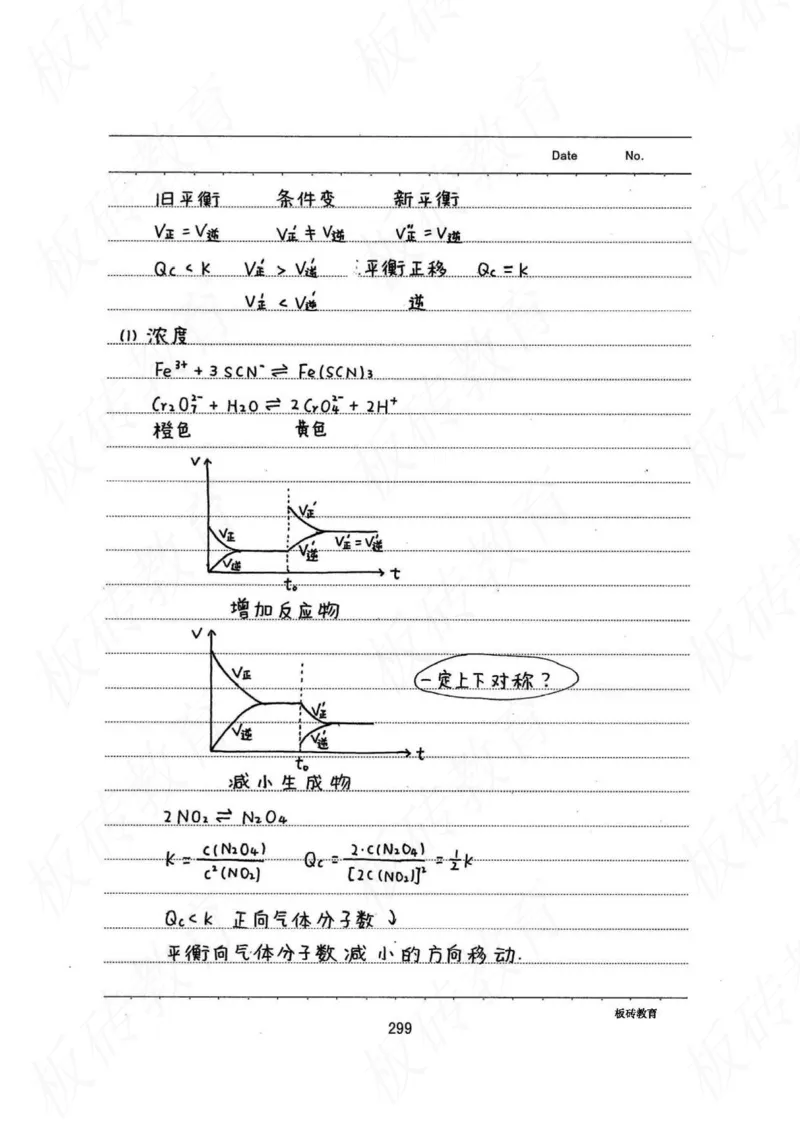 Date No.
旧平衡 条件变 新平衡
V正 = V逆 V正' ≠ V逆' V正" = V逆"
Qc < K V正' > V逆' ∴平衡正移 Qc = K
V正' < V逆' 逆
(1) 浓度
Fe³⁺ + 3SCN⁻ ⇌ Fe(SCN)₃
Cr₂O₇²⁻ + H₂O ⇌ 2CrO₄²⁻ + 2H⁺
橙色 黄色
V
V正'
V正
V正' = V逆'
V逆'
V逆
t
t₀
增加反应物
V
V正
一定上下对称?
V正'
V逆
V逆'
t
t₀
减小生成物
2NO₂ ⇌ N₂O₄
K = c(N₂O₄) / c²(NO₂) Qc = 2·c(N₂O₄) / [2c(NO₂)]² = 1/2 K
Qc < K 正向气体分子数↓
平衡向气体分子数减小的方向移动.
板砖教育
299